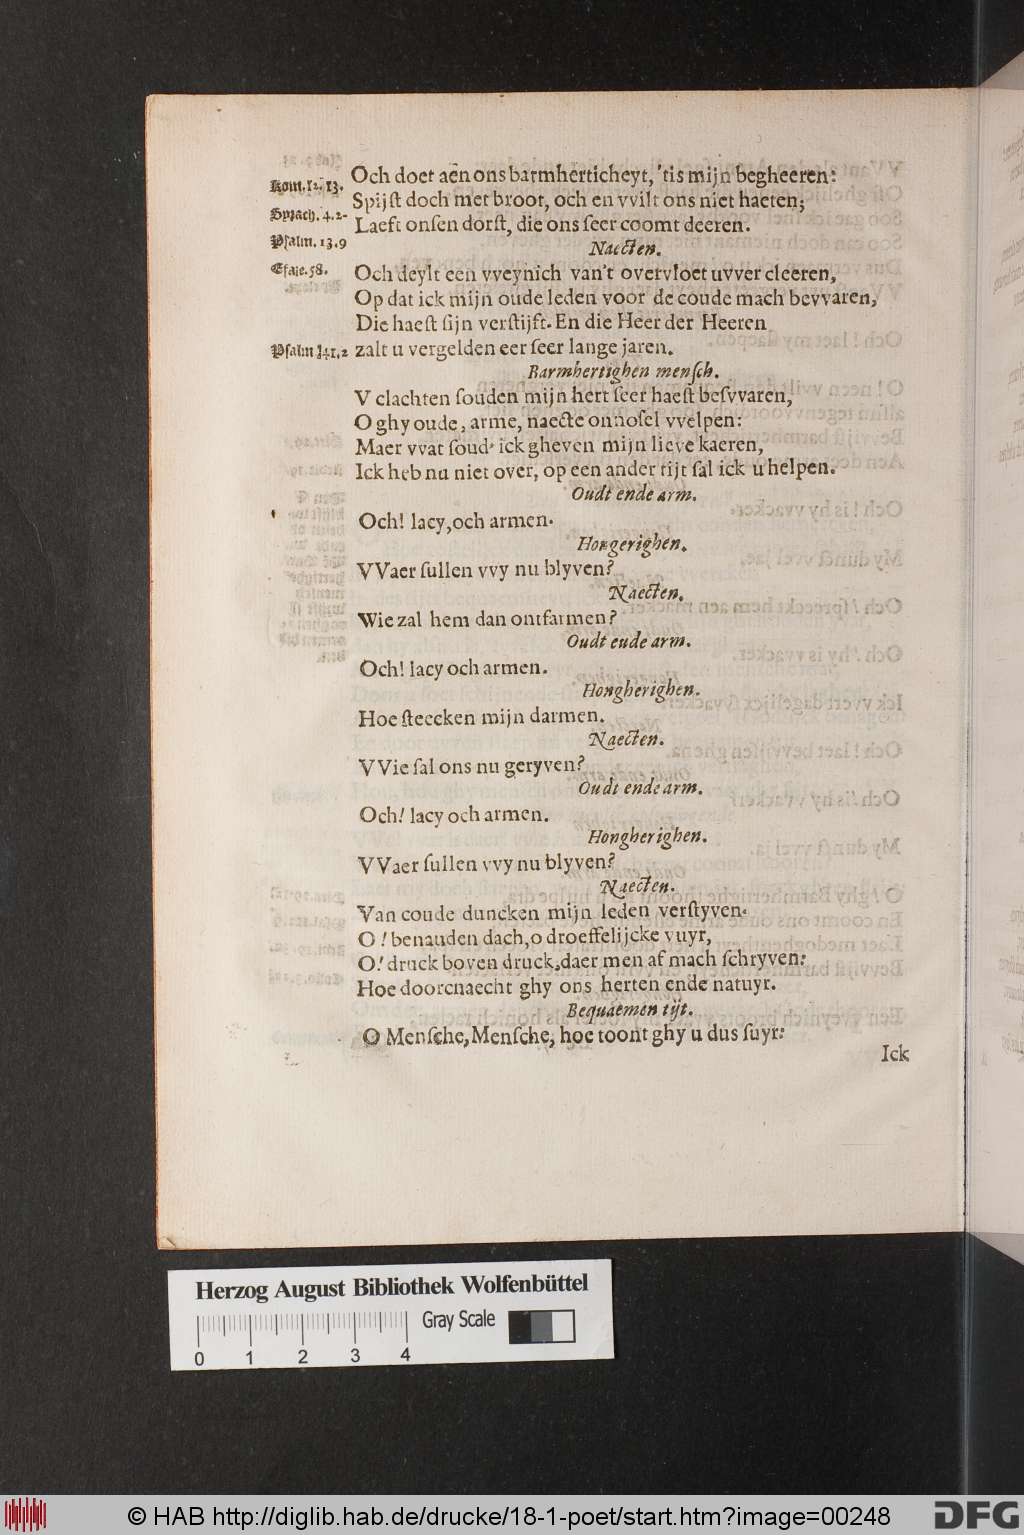 Och doet aen ons barmherticheyt, 'tis mijn begheeren:
Rom. 12. 13.
Spijſt doch met broot, och en vvilt ons niet haeten;
Syrach. 4. 2-
Laeft onſen dorſt, die ons ſeer coomt deeren.
Pſalm. 13. 9
Naecten.
Eſaie. 58.
Och deylt een vveynich van't overvloet uvver cleeren,
Op dat ick mijn oude leden voor de coude mach bevvaren,
Die haeſt ſijn verſtijft. En die Heer der Heeren
Pſalm 141. 2
zalt u vergelden eer ſeer lange jaren.
Barmhertighen menſch.
V clachten ſouden mijn hert ſeer haeſt beſvvaren,
O ghy oude, arme, naecte onnoſel vvelpen:
Maer vvat ſoud' ick gheven mijn lieve kaeren,
Ick heb nu niet over, op een ander tijt ſal ick u helpen.
Oudt ende arm.
Och! lacy, och armen.
Hongerighen.
VVaer ſullen vvy nu blyven?
Naecten.
Wie zal hem dan ontfarmen?
Oudt eude arm.
Och! lacy och armen.
Hongherighen.
Hoe ſteecken mijn darmen.
Naecten.
VVie ſal ons nu geryven?
Oudt ende arm.
Och! lacy och armen.
Hongherighen.
VVaer ſullen vvy nu blyven?
Naecten.
Van coude duncken mijn leden verſtyven.
O! benauden dach, o droeffelijcke vuyr,
O! druck boven druck, daer men af mach ſchryven:
Hoe doorcnaecht ghy ons herten ende natuyr.
Bequaemen tijt.
O Menſche, Menſche, hoe toont ghy u dus ſuyr:
Ick
Herzog August Bibliothek Wolfenbüttel
Gray Scale
0 1 2 3 4
© HAB http://diglib.hab.de/drucke/18-1-poet/start.htm?image=00248
DFG